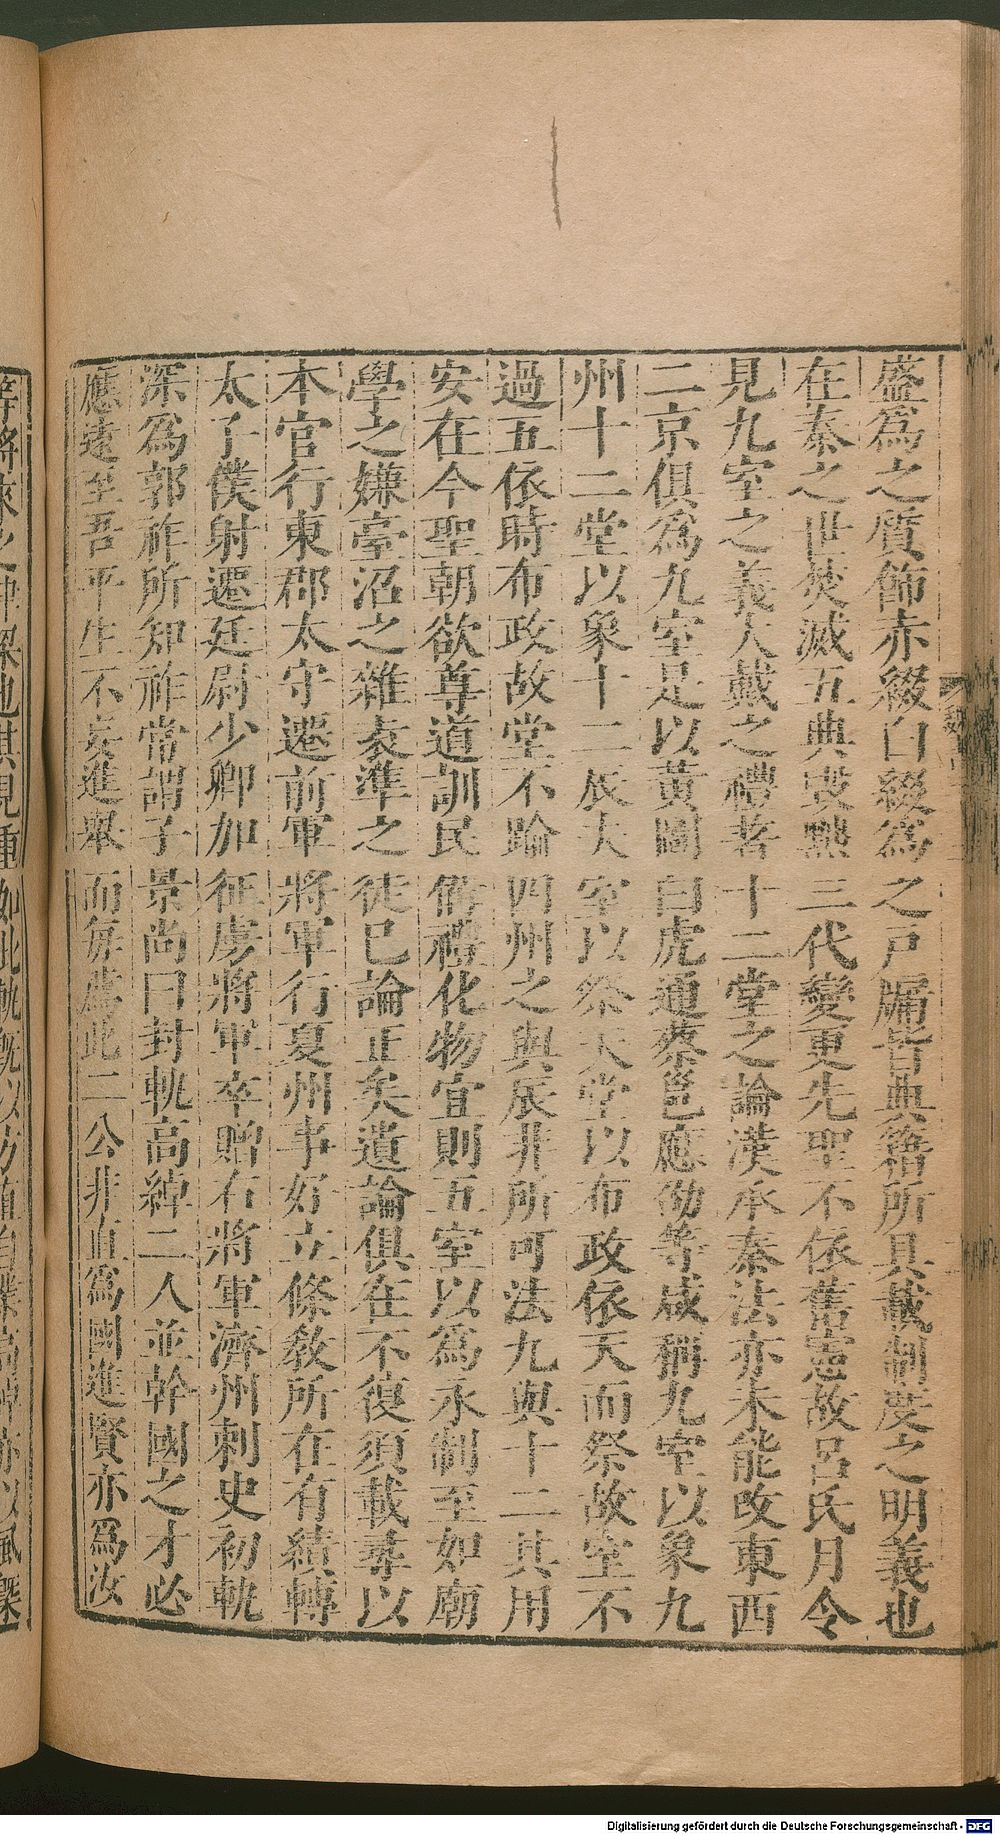 盛爲之質飾赤綴白綴爲之戸牖皆典籍所具載制度之明義也
在秦之世焚滅五典毀黜三代變更先聖不依舊憲故呂氏月令
見九室之義大戴之禮著十二堂之論漢承秦法亦未能改東西
二京俱爲九室是以黃圖白虎通蔡邕應劭等咸稱九室以象九
州十二堂以象十二辰夫室以祭天堂以布政依天而祭故室不
過五依時布政故堂不踰四州之與辰非所可法九與十二其用
安在今聖朝欲尊道訓民備禮化物宜則五室以爲永制至如廟
學之嫌臺沼之雜袁準之徒已論正矣遺論俱在不復須載尋以
本官行東郡太守遷前軍將軍行夏州事好立條敎所在有績轉
太子僕射遷廷尉少卿加征虜將軍卒贈右將軍濟州刺史初軌
深爲郭祚所知祚常謂子景尚曰封軌高綽二人並幹國之才必
應遠至吾平生不妄進舉而毎薦此二公非直爲國進賢亦爲汝
等將來之津梁也其見重如此軌旣以方直自業高綽亦以風槩
Digitalisierung gefördert durch die Deutsche Forschungsgemeinschaft - DFG